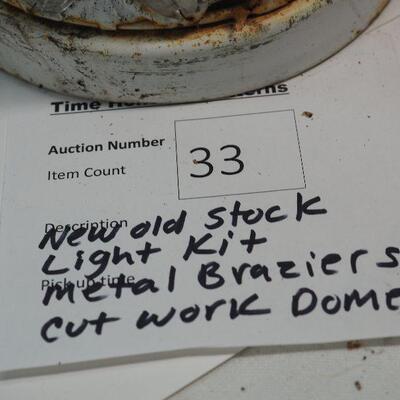 Time
Auction Number
Item Count
33
Description
New old stock
Light Kit
Pick up time
metal Braziers
cut work Dome